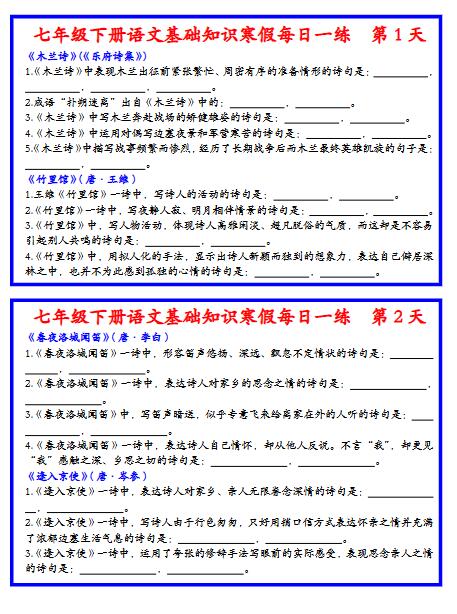 七年级下册语文基础知识寒假每日一练 第1天
《木兰诗》(《乐府诗集》)
1.《木兰诗》中表现木兰出征前紧张繁忙、周密有序的准备情形的诗句是：________，
________，________，________。
2.成语“扑朔迷离”出自《木兰诗》中的：________，________。
3.《木兰诗》中写木兰奔赴战场的矫健雄姿的诗句是：________，________。
4.《木兰诗》中运用对偶写边塞夜景和军营寒苦的诗句是：________，________。
5.《木兰诗》中描写战事频繁而惨烈，经历了长期战争后而木兰最终英雄凯旋的句子是：
________，________。
《竹里馆》（唐·王维）
1.王维《竹里馆》一诗中，写诗人的活动的诗句是：________，________。
2.《竹里馆》一诗中，写夜静人寂、明月相伴情景的诗句是：________，________。
3.《竹里馆》中，写人物活动，体现诗人高雅闲淡、超凡脱俗的气质，而这却是不容易
引起别人共鸣的诗句是：________，________。
4.《竹里馆》中，用拟人化的手法，显示出诗人新颖而独到的想象力，表达自己僻居深
林之中，也并不为此感到孤独的心情的诗句是：________，________。
七年级下册语文基础知识寒假每日一练 第2天
《春夜洛城闻笛》（唐·李白）
1.《春夜洛城闻笛》一诗中，形容笛声悠扬、深远、飘忽不定情状的诗句是：________
____，________。
2.《春夜洛城闻笛》一诗中，表达诗人对家乡的思念之情的诗句是：________，
________。
3.《春夜洛城闻笛》中，写笛声暗送，似乎专意飞来给离家在外的人听的诗句是：____
________，________。
4.《春夜洛城闻笛》一诗中，表达诗人自己情怀，却从他人反说。不言“我”，却更见
“我”感触之深、乡思之切的诗句是：________，________。
《逢入京使》（唐·岑参）
1.《逢入京使》一诗中，表达诗人对家乡、亲人无限眷念深情的诗句是：________
__，________。
2.《逢入京使》一诗中，写诗人由于行色匆匆，只好用捎口信方式表达怀亲之情并充满
了浓郁边塞生活气息的诗句是：________，________。
3.《逢入京使》一诗中，运用了夸张的修辞手法写眼前的实际感受，表现思念亲人之情
的诗句是：________，________。